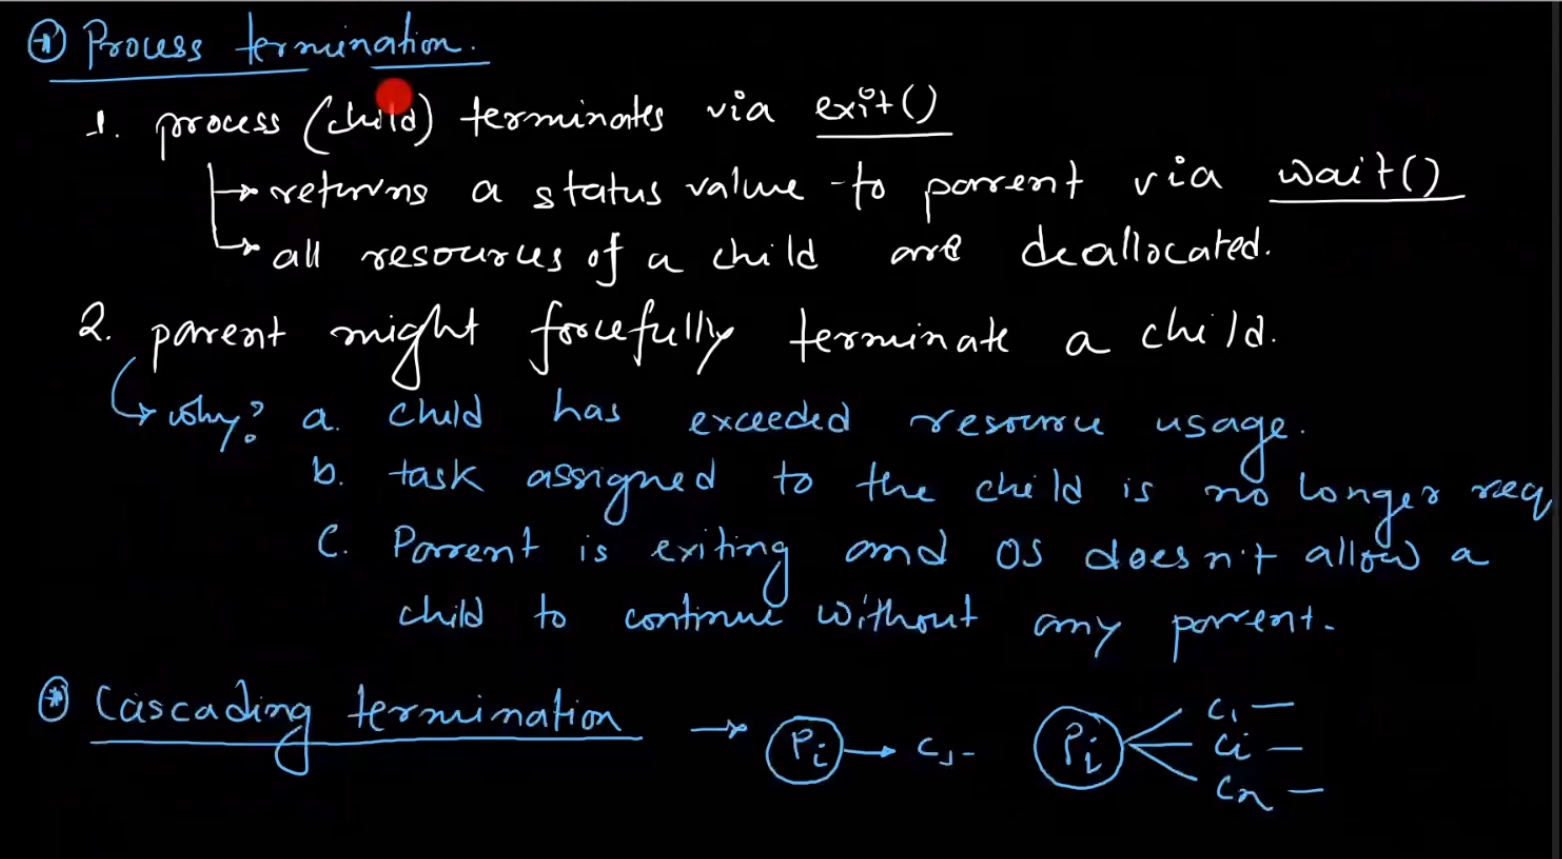 * Process termination.
1. process (child) terminates via exit()
→ returns a status value to parent via wait()
→ all resources of a child are deallocated.
2. parent might forcefully terminate a child.
→ why? a. child has exceeded resource usage.
b. task assigned to the child is no longer req
c. Parent is exiting and OS doesn't allow a
child to continue without any parent.
* Cascading termination → Pi → cj - Pi c1 —
ci —
cn —